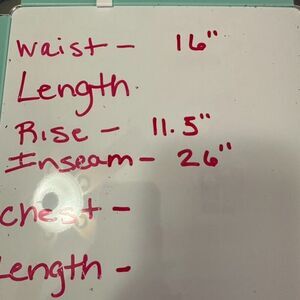 Waist - 16"
Length
Rise - 11.5"
Inseam - 26"
chest -
Length -